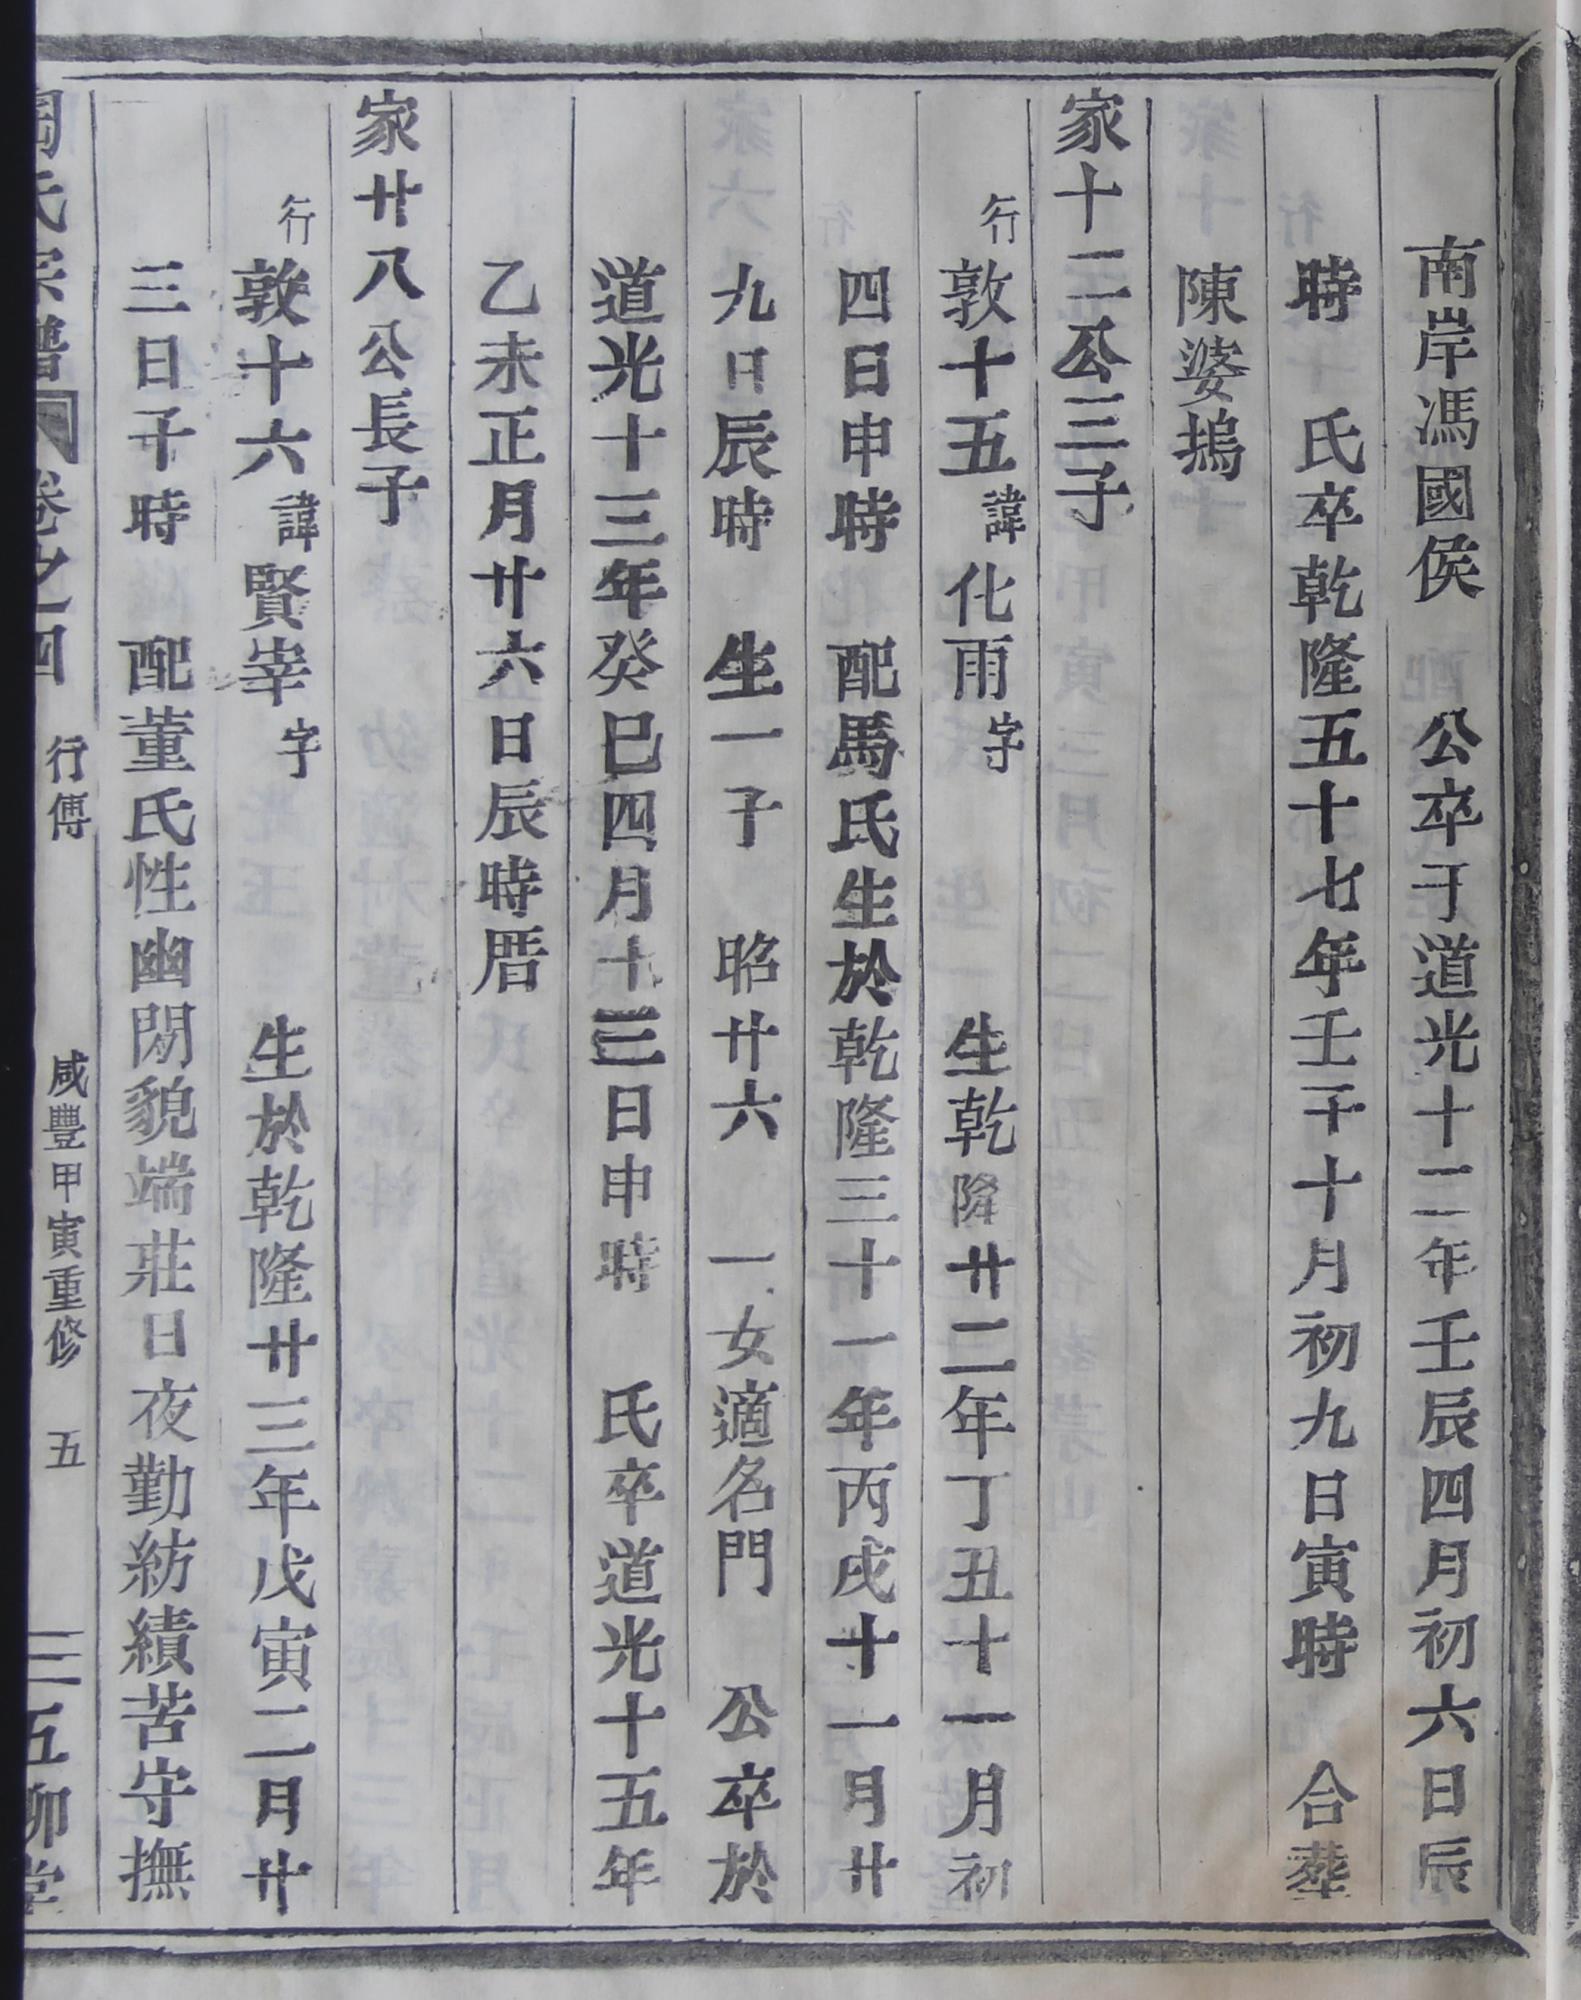 南岸馮國侯　公卒于道光十二年壬辰四月初六日辰
時　氏卒乾隆五十七年壬子十月初九日寅時　合葬
陳婆塢
家十二公三子
行敦十五諱化雨字　　　生乾隆廿二年丁丑十一月初
四日申時　配馬氏生於乾隆三十一年丙戌十一月廿
九日辰時　生一子　昭廿六　一女適名門　公卒於
道光十三年癸巳四月十三日申時　氏卒道光十五年
乙未正月廿六日辰時厝
家廿八公長子
行敦十六諱賢宰字　　　生於乾隆廿三年戊寅二月廿
三日子時　配董氏性幽閒貌端莊日夜勤紡績苦守撫
氏宗譜　卷之四　行傳　咸豐甲寅重修　五　五柳堂